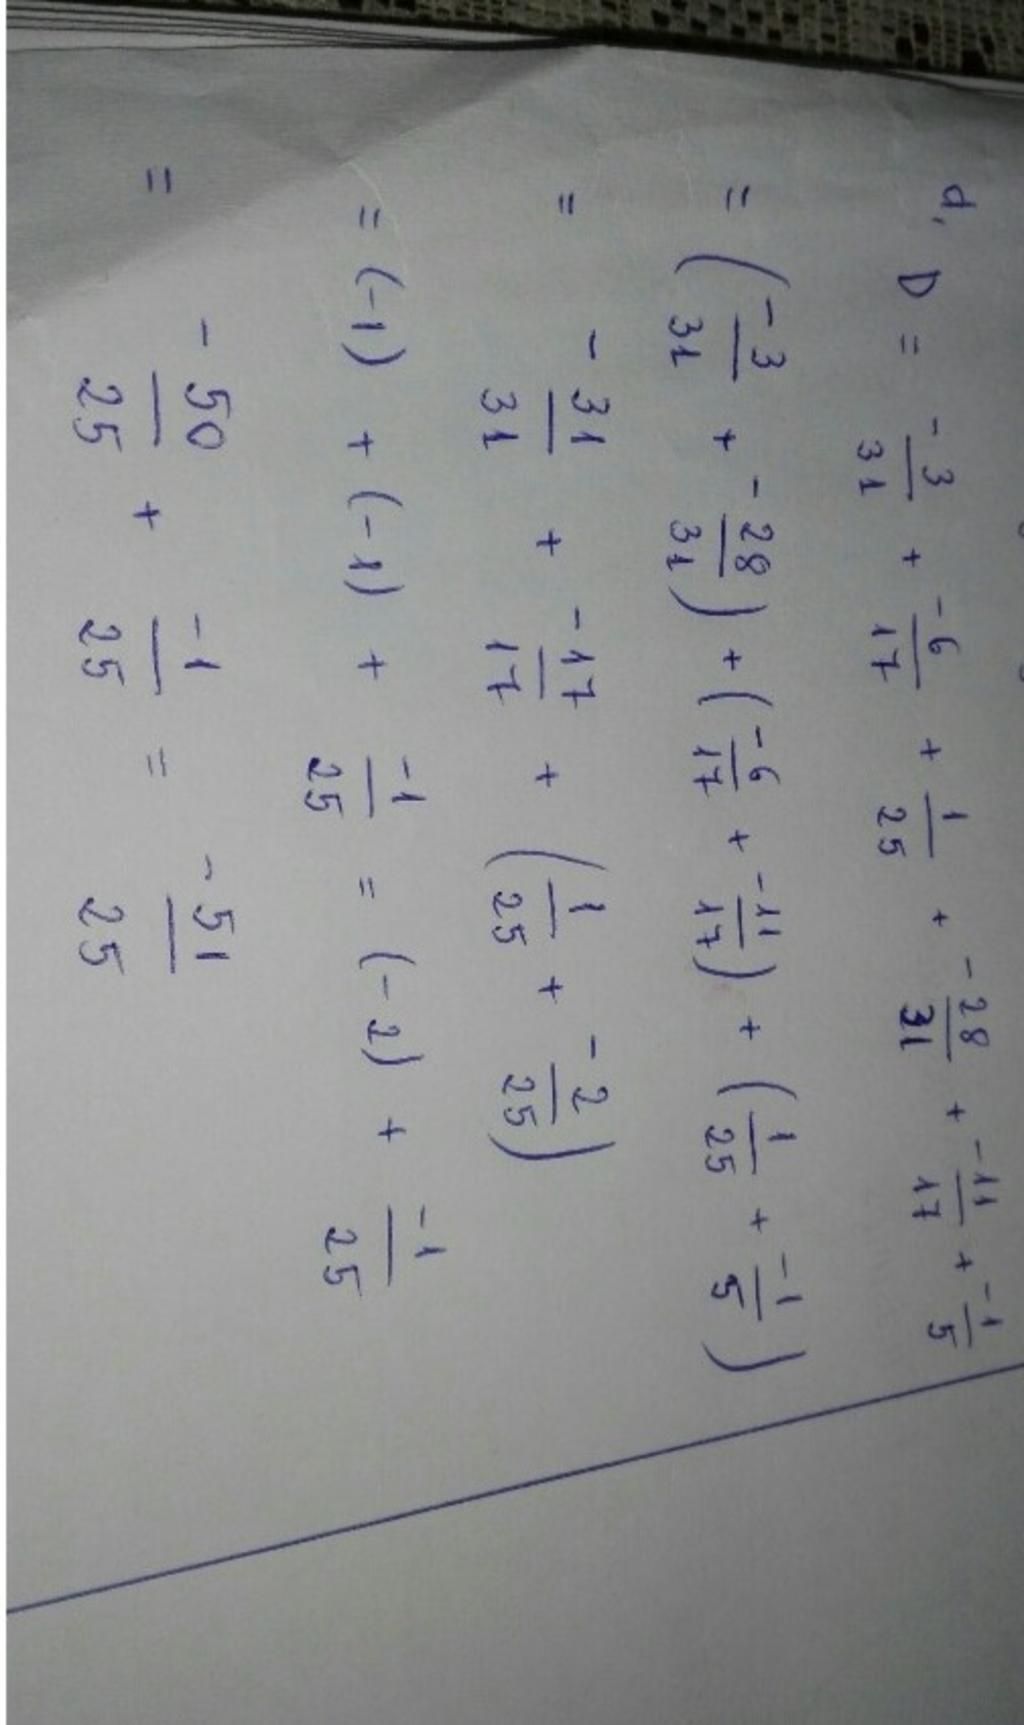 d, D = -3/31 + -6/17 + 1/25 + -28/31 + -11/17 + -1/5
= (-3/31 + -28/31) + (-6/17 + -11/17) + (1/25 + -1/5)
= -31/31 + -17/17 + (1/25 + -2/25)
= (-1) + (-1) + -1/25 = (-2) + -1/25
= -50/25 + -1/25 = -51/25